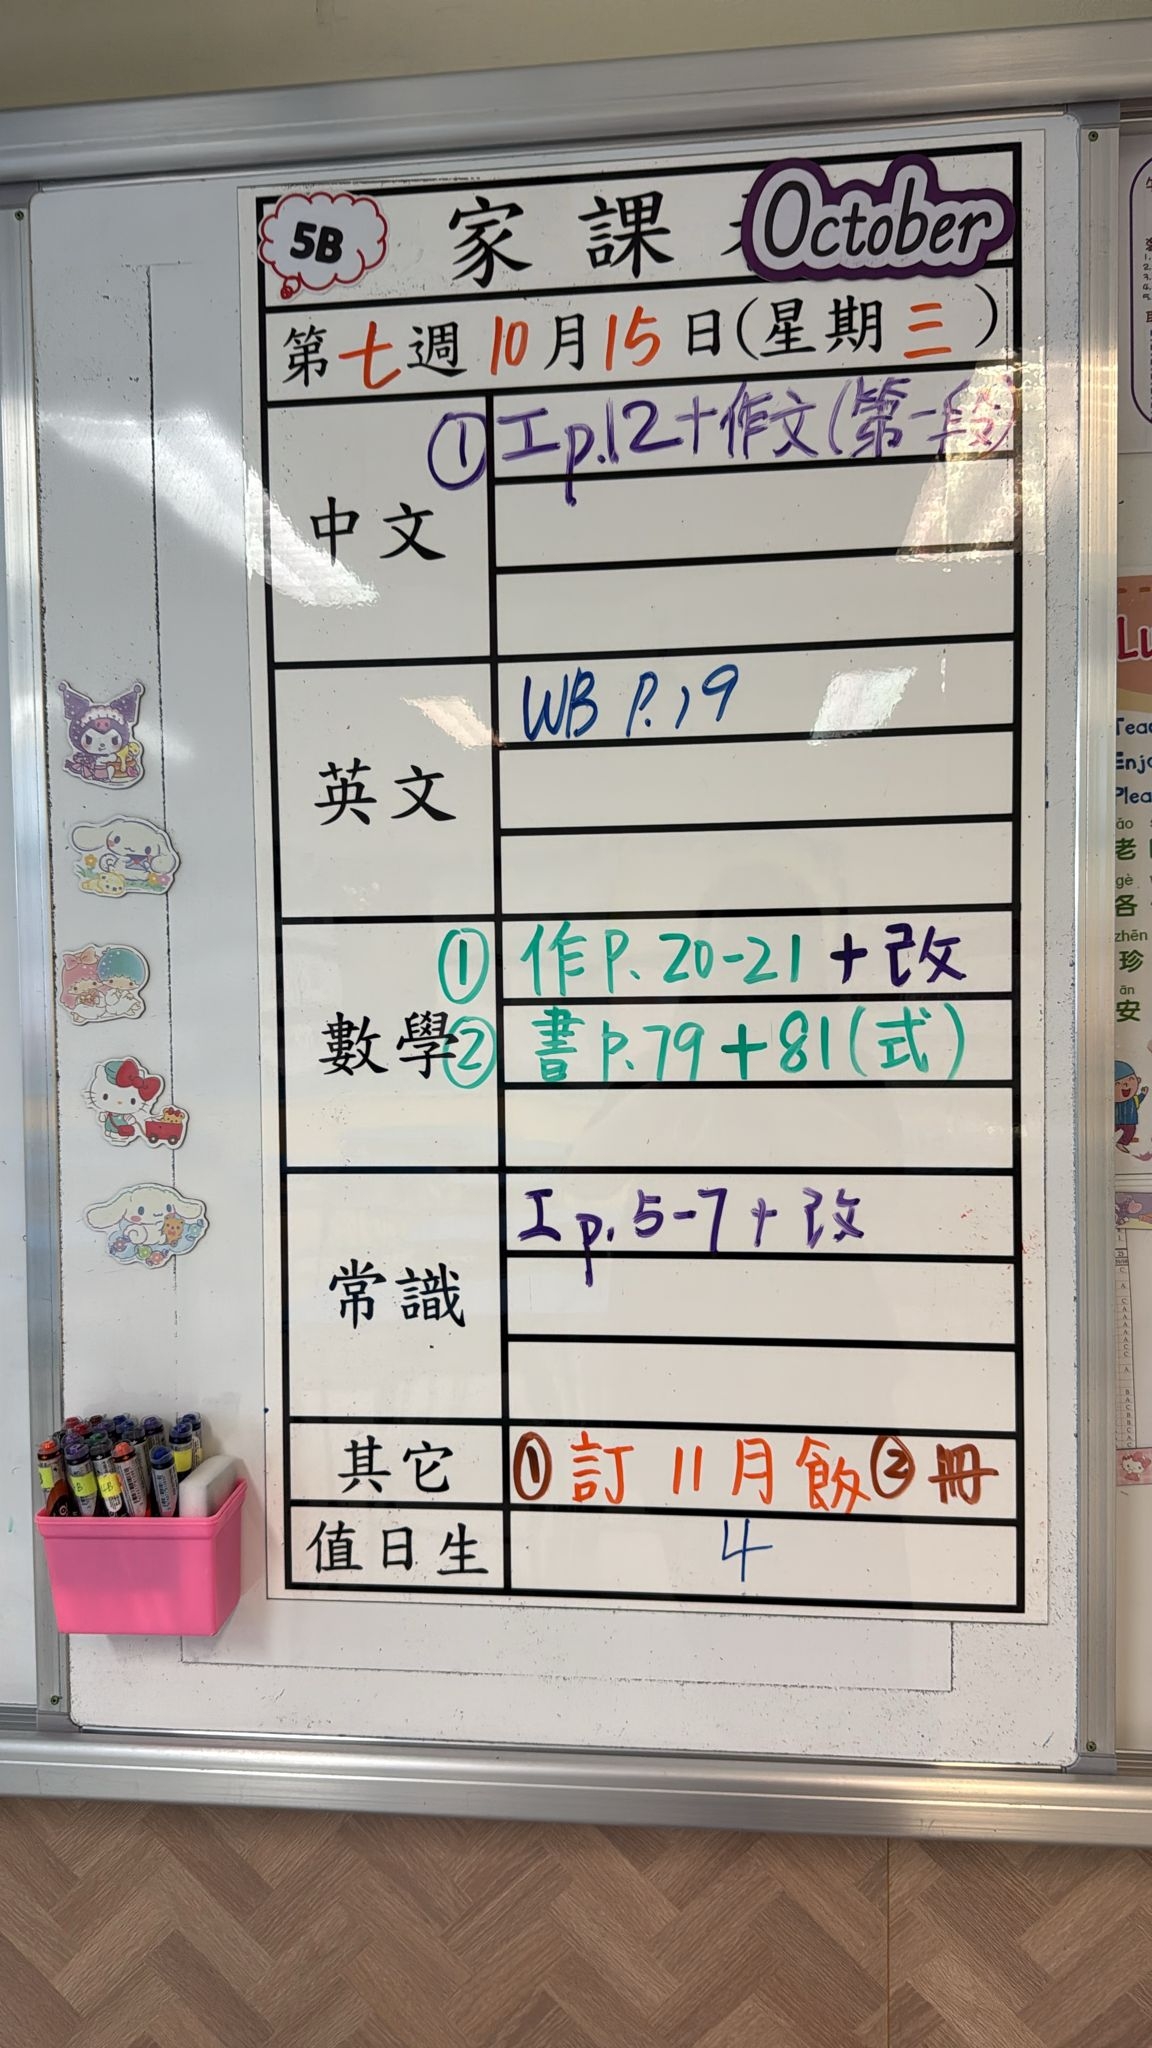 5B 家課 October
第七週10月15日(星期三)
中文
①工p.12+作文(第一段)
英文
WB P.19
數學
①作P.20-21+改
②書P.79+81(式)
常識
工p.5-7+改
其它
①訂11月飯②冊
值日生
4
老
各
zhēn
珍
ān
安